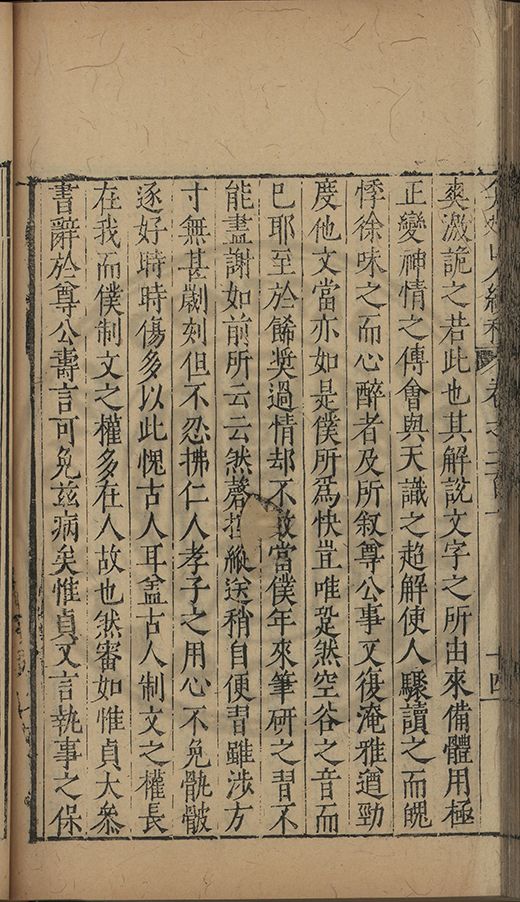 州山人續稿 卷之二百 十四
爽激詭之若此也其解說文字之所由來備體用極
正變神情之傅會與天識之超解使人驟讀之而魄
悸徐味之而心醉者及所叙尊公事又復淹雅遒勁
度他文當亦如是僕所爲快豈唯跫然空谷之音而
已耶至於餙奬過情却不敢當僕年來筆研之習不
能盡謝如前所云云然磬控縱送稍自便習雖涉方
寸無甚劌刻但不忍拂仁人孝子之用心不免骫骳
逐好時時傷多以此愧古人耳盖古人制文之權長
在我而僕制文之權多在人故也然審如惟貞大叅
書辭於尊公壽言可免兹病矣惟貞又言執事之保